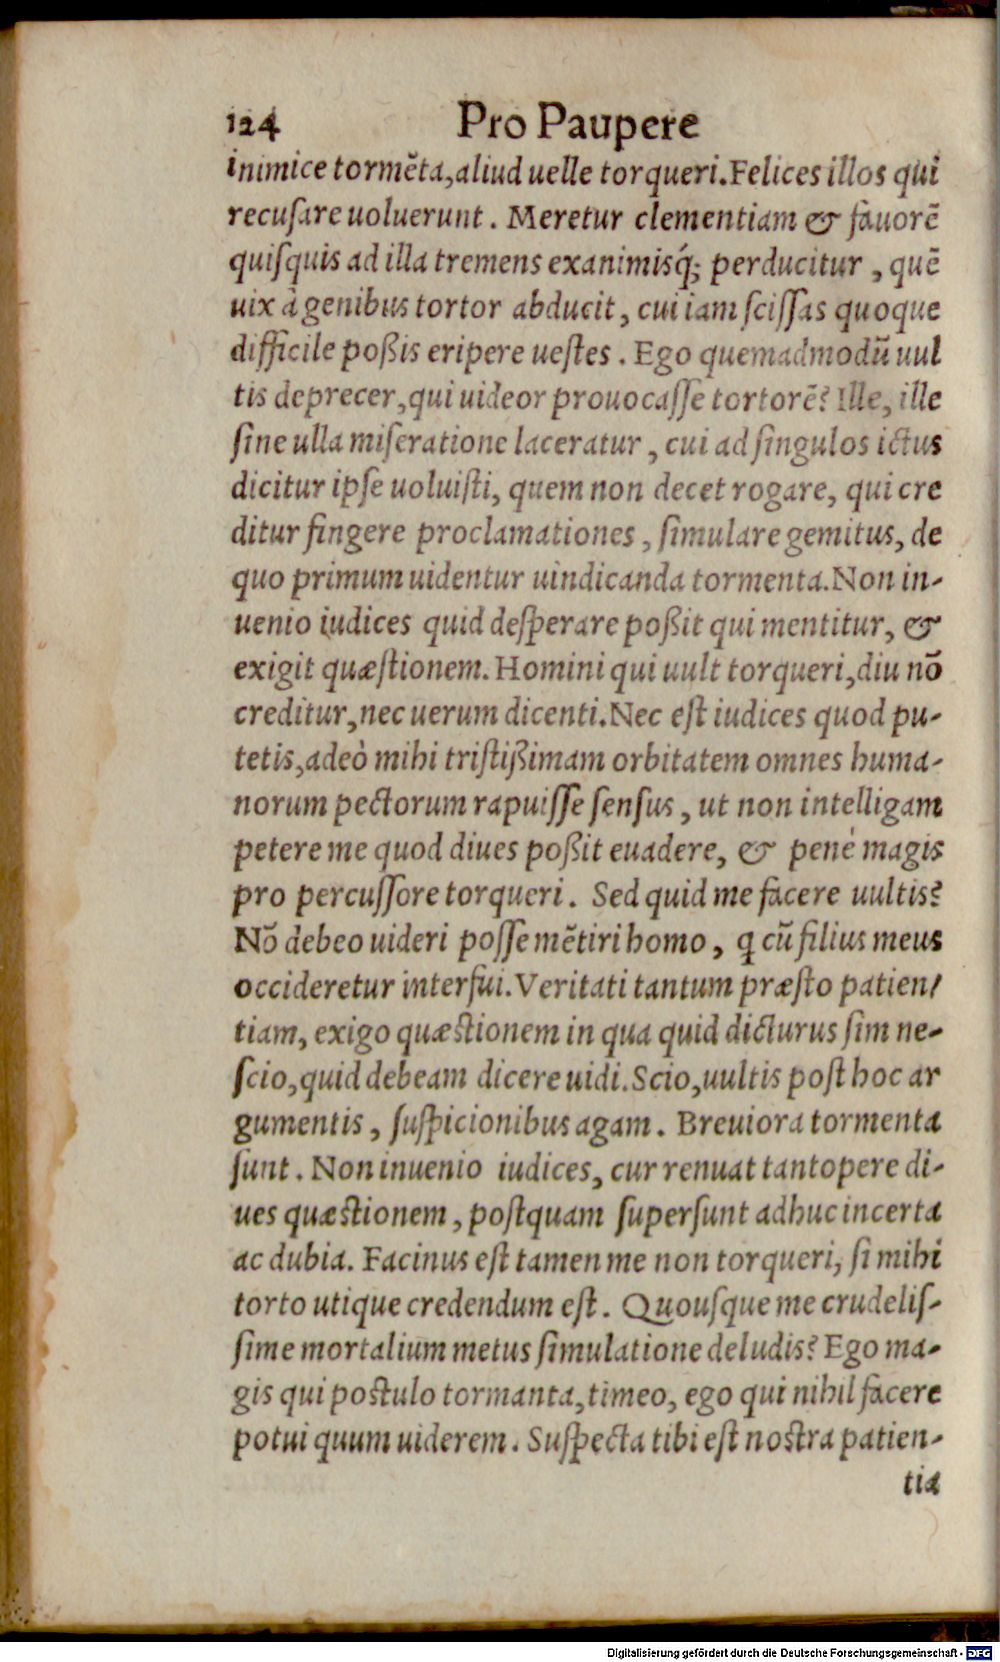 124 Pro Paupere
inimice tormēta, aliud uelle torqueri. Felices illos qui
recuſare uoluerunt. Meretur clementiam & fauorē
quiſquis ad illa tremens exanimisq́; perducitur, quē
uix à genibus tortor abducit, cui iam ſciſſas quoque
difficile poßis eripere ueſtes. Ego quemadmodū uul
tis deprecer, qui uideor prouocaſſe tortorē? Ille, ille
ſine ulla miſeratione laceratur, cui ad ſingulos ictus
dicitur ipſe uoluiſti, quem non decet rogare, qui cre
ditur fingere proclamationes, ſimulare gemitus, de
quo primum uidentur uindicanda tormenta. Non in-
uenio iudices quid deſperare poßit qui mentitur, &
exigit quæſtionem. Homini qui uult torqueri, diu nō
creditur, nec uerum dicenti. Nec eſt iudices quod pu-
tetis, adeò mihi triſtißimam orbitatem omnes huma-
norum pectorum rapuiſſe ſenſus, ut non intelligam
petere me quod diues poßit euadere, & penè magis
pro percuſſore torqueri. Sed quid me facere uultis?
Nō debeo uideri poſſe mētiri homo, ꝗ cū filius meus
occideretur interfui. Veritati tantum præſto patien-
tiam, exigo quæſtionem in qua quid dicturus ſim ne-
ſcio, quid debeam dicere uidi. Scio, uultis poſt hoc ar
gumentis, ſuſpicionibus agam. Breuiora tormenta
ſunt. Non inuenio iudices, cur renuat tantopere di-
ues quæſtionem, poſtquam ſuperſunt adhuc incerta
ac dubia. Facinus eſt tamen me non torqueri, ſi mihi
torto utique credendum eſt. Quouſque me crudelis-
ſime mortalium metus ſimulatione deludis? Ego ma-
gis qui poſtulo tormanta, timeo, ego qui nihil facere
potui quum uiderem. Suſpecta tibi eſt noſtra patien-
tia
Digitalisierung gefördert durch die Deutsche Forschungsgemeinschaft - DFG